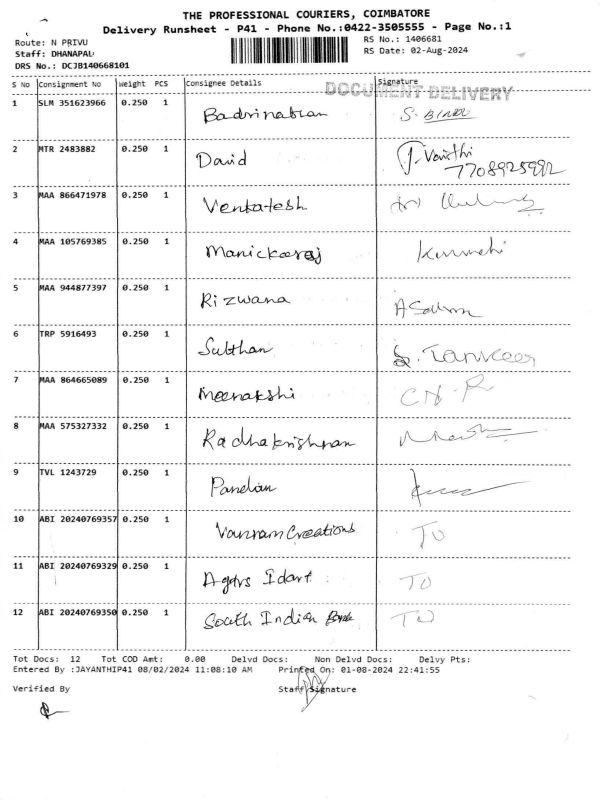 THE PROFESSIONAL COURIERS, COIMBATORE
Delivery Runsheet - P41 - Phone No.:0422-3505555 - Page No.:1
Route: N PRIVU RS No.: 1406681
Staff: DHANAPAL RS Date: 02-Aug-2024
DRS No.: DCJB140668101
S No Consignment No Weight PCS Consignee Details Signature
DOCUMENT DELIVERY
1 SLM 351623966 0.250 1 Badrinabian S.
2 MTR 2483882 0.250 1 David J. Varsthi
7708925992
3 MAA 866471978 0.250 1 Venkatesh
4 MAA 105769385 0.250 1 Manickaraj
5 MAA 944877397 0.250 1 Rizwana
6 TRP 5916493 0.250 1 Sulthan S. Tanveer
7 MAA 864665089 0.250 1 Meenakshi
8 MAA 575327332 0.250 1 Radhakrishnan
9 TVL 1243729 0.250 1 Pandian
10 ABI 20240769357 0.250 1 Vanram Creations TO
11 ABI 20240769329 0.250 1 Idart TO
12 ABI 20240769350 0.250 1 South Indian Bank TO
Tot Docs: 12 Tot COD Amt: 0.00 Delvd Docs: Non Delvd Docs: Delvy Pts:
Entered By :JAYANTHIP41 08/02/2024 11:08:10 AM Printed On: 01-08-2024 22:41:55
Verified By Staff Signature